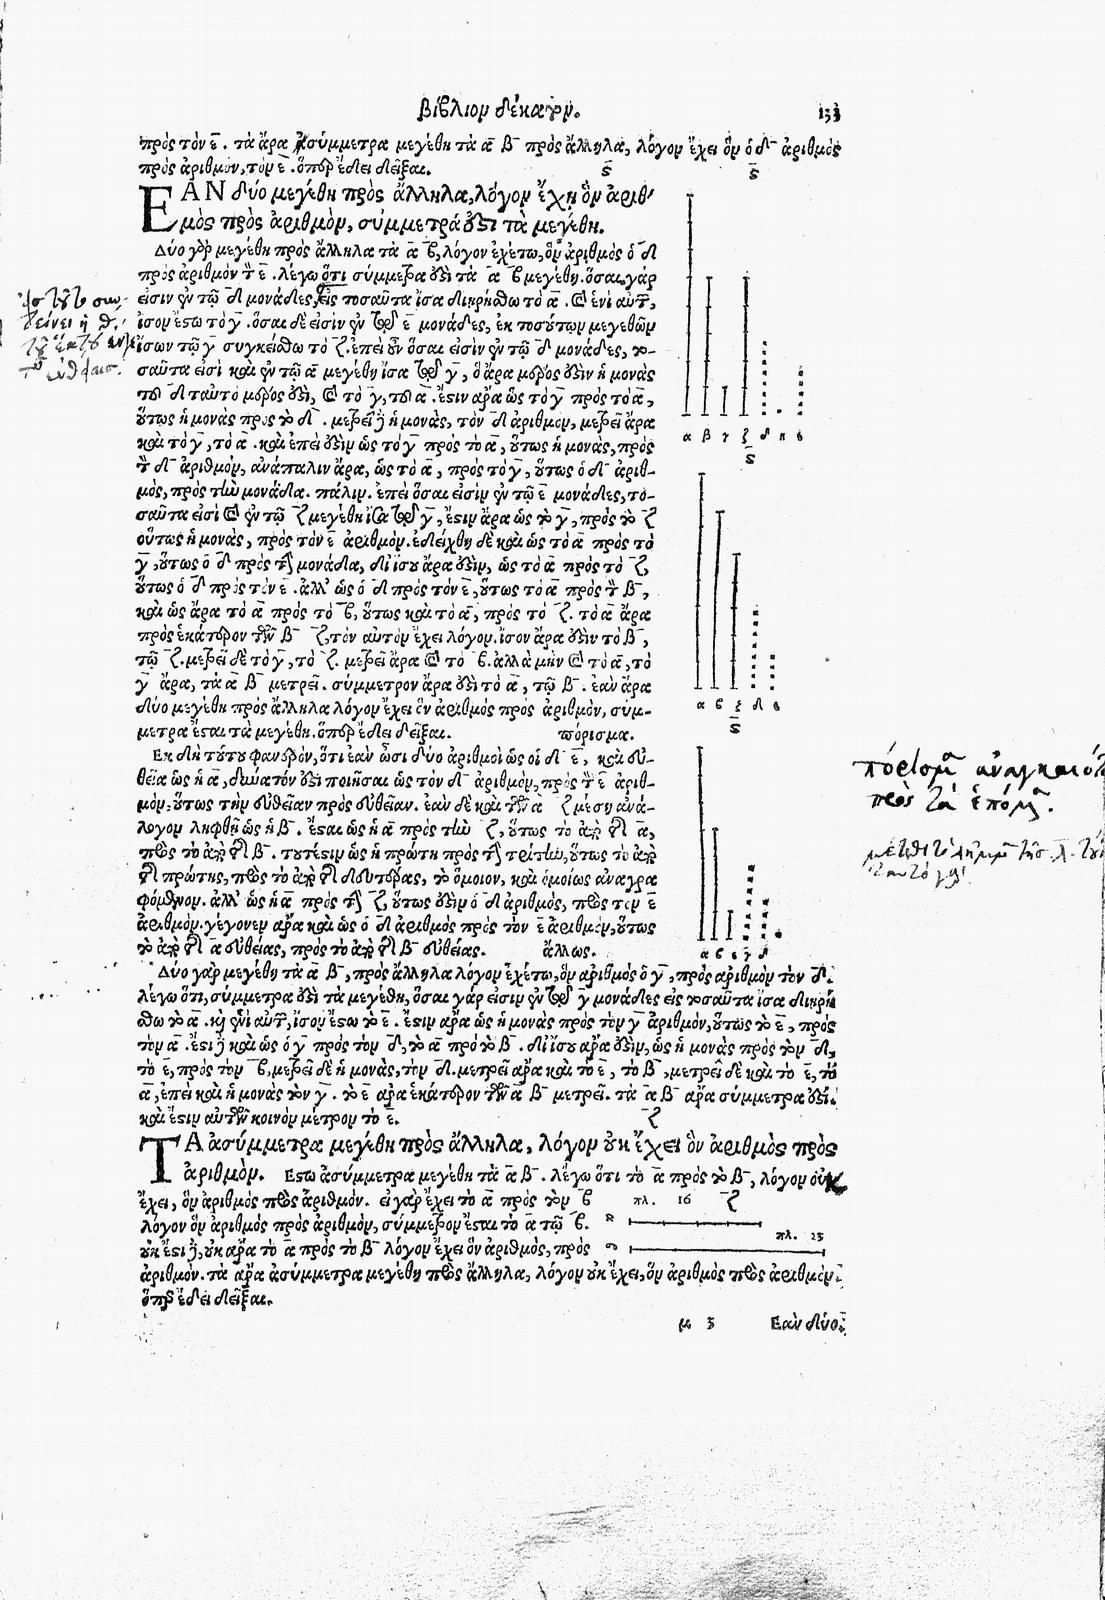 βιβλίον δέκατον. 133
πρὸς τὸν ε̄. τὰ ἄρα σύμμετρα μεγέθη τὰ ᾱ β̄ πρὸς ἄλληλα, λόγον ἔχει ὃν ὁ δ̄ ἀριθμὸς
πρὸς ἀριθμὸν, τὸν ε̄. ὅπερ ἔδει δεῖξαι. ϛ̄ ϛ̄
ΕΑΝ δύο μεγέθη πρὸς ἄλληλα, λόγον ἔχῃ ὃν ἀριθ-
μὸς πρὸς ἀριθμὸν, σύμμετρά ἐστι τὰ μεγέθη.
Δύο γὰρ μεγέθη πρὸς ἄλληλα τὰ ᾱ β̄, λόγον ἐχέτω, ὃν ἀριθμὸς ὁ δ̄
πρὸς ἀριθμὸν τὸν ε̄. λέγω ὅτι σύμμετρα ἐστι τὰ ᾱ β̄ μεγέθη. ὅσαι γάρ
εἰσιν ἐν τῷ δ̄ μονάδες, εἰς τοσαῦτα ἴσα διῃρήσθω τὸ ᾱ. καὶ ἑνὶ αὐτῶν,
ἴσον ἔστω τὸ γ̄. ὅσαι δὲ εἰσὶν ἐν τῷ ε̄ μονάδες, ἐκ τοσούτων μεγεθῶν
ἴσων τῷ γ̄ συγκείσθω τὸ ζ̄. ἐπεὶ οὖν ὅσαι εἰσὶν ἐν τῷ δ̄ μονάδες, το-
σαῦτα εἰσὶ καὶ ἐν τῷ ᾱ μεγέθη ἴσα τῷ γ̄, ὃ ἄρα μέρος ἐστὶν ἡ μονὰς
τοῦ δ̄ ταὐτὸ μέρος ἐστὶ, καὶ τὸ γ̄, τοῦ ᾱ. ἔστιν ἄρα ὡς τὸ γ̄ πρὸς τὸ ᾱ,
οὕτως ἡ μονὰς πρὸς τὸ δ̄. μετρεῖ δὲ ἡ μονὰς, τὸν δ̄ ἀριθμὸν, μετρεῖ ἄρα
καὶ τὸ γ̄, τὸ ᾱ. καὶ ἐπεὶ ἐστὶν ὡς τὸ γ̄ πρὸς τὸ ᾱ, οὕτως ἡ μονὰς, πρὸς
τὸν δ̄ ἀριθμὸν, ἀνάπαλιν ἄρα, ὡς τὸ ᾱ, πρὸς τὸ γ̄, οὕτως ὁ δ̄ ἀριθ-
μὸς, πρὸς τὴν μονάδα. πάλιν. ἐπεὶ ὅσαι εἰσὶν ἐν τῷ ε̄ μονάδες, το-
σαῦτα εἰσὶ καὶ ἐν τῷ ζ̄ μεγέθη ἴσα τῷ γ̄, ἔστιν ἄρα ὡς τὸ γ̄, πρὸς τὸ ζ̄
οὕτως ἡ μονὰς, πρὸς τὸν ε̄ ἀριθμὸν. ἐδείχθη δὲ καὶ ὡς τὸ ᾱ πρὸς τὸ
γ̄, οὕτως ὁ δ̄ πρὸς τὴν μονάδα, δι᾽ ἴσου ἄρα ἐστὶν, ὡς τὸ ᾱ πρὸς τὸ ζ̄,
οὕτως ὁ δ̄ πρὸς τὸν ε̄. ἀλλ᾽ ὡς ὁ δ̄ πρὸς τὸν ε̄, οὕτως τὸ ᾱ πρὸς τὸ β̄,
καὶ ὡς ἄρα τὸ ᾱ πρὸς τὸ β̄, οὕτως καὶ τὸ ᾱ, πρὸς τὸ ζ̄. τὸ ᾱ ἄρα
πρὸς ἑκάτερον τῶν β̄ ζ̄, τὸν αὐτὸν ἔχει λόγον. ἴσον ἄρα ἐστὶν τὸ β̄,
τῷ ζ̄. μετρεῖ δὲ τὸ γ̄, τὸ ζ̄. μετρεῖ ἄρα καὶ τὸ β̄. ἀλλὰ μὴν καὶ τὸ ᾱ, τὸ
γ̄ ἄρα, τὰ ᾱ β̄ μετρεῖ. σύμμετρον ἄρα ἐστὶ τὸ ᾱ, τῷ β̄. ἐὰν ἄρα
δύο μεγέθη πρὸς ἄλληλα λόγον ἔχει ὃν ἀριθμὸς πρὸς ἀριθμὸν, σύμ-
μετρα ἔσται τὰ μεγέθη. ὅπερ ἔδει δεῖξαι. πόρισμα.
Εκ δὴ τούτου φανερὸν, ὅτι ἐὰν ὦσι δύο ἀριθμοὶ ὡς οἱ δ̄ ε̄, καὶ εὐ-
θεῖα ὡς ἡ ᾱ, δυνατόν ἐστι ποιῆσαι ὡς τὸν δ̄ ἀριθμὸν, πρὸς τὸν ε̄ ἀριθ-
μὸν, οὕτως τὴν εὐθεῖαν πρὸς εὐθεῖαν. ἐὰν δὲ καὶ τῶν ᾱ ζ̄ μέση ἀνά-
λογον ληφθῇ ὡς ἡ β̄. ἔσται ὡς ἡ ᾱ πρὸς τὴν ζ̄, οὕτως τὸ ἀπὸ τῆς ᾱ,
πρὸς τὸ ἀπὸ τῆς β̄. τουτέστιν ὡς ἡ πρώτη πρὸς τὴν τρίτην, οὕτως τὸ ἀπὸ
τῆς πρώτης, πρὸς τὸ ἀπὸ τῆς δευτέρας, τὸ ὅμοιον, καὶ ὁμοίως ἀναγρα
φόμενον. ἀλλ᾽ ὡς ἡ ᾱ πρὸς τὴν ζ̄, οὕτως ἐστὶν ὁ δ̄ ἀριθμὸς, πρὸς τὸν ε̄
ἀριθμὸν. γέγονεν ἄρα καὶ ὡς ὁ δ̄ ἀριθμὸς πρὸς τὸν ε̄ ἀριθμὸν, οὕτως
τὸ ἀπὸ τῆς ᾱ εὐθείας, πρὸς τὸ ἀπὸ τῆς β̄ εὐθείας. ἄλλως.
Δύο γὰρ μεγέθη τὰ ᾱ β̄, πρὸς ἄλληλα λόγον ἐχέτω, ὃν ἀριθμὸς ὁ γ̄, πρὸς ἀριθμὸν τὸν δ̄.
λέγω ὅτι, σύμμετρα ἐστὶ τὰ μεγέθη, ὅσαι γάρ εἰσιν ἐν τῷ γ̄ μονάδες εἰς τοσαῦτα ἴσα διῃρή
σθω τὸ ᾱ. καὶ ἑνὶ αὐτῶν, ἴσον ἔστω τὸ ε̄. ἔστιν ἄρα ὡς ἡ μονὰς πρὸς τὸν γ̄ ἀριθμὸν, οὕτως τὸ ε̄, πρὸς
τὸν ᾱ. ἔστι δὲ καὶ ὡς ὁ γ̄ πρὸς τὸν δ̄, τὸ ᾱ πρὸς τὸ β̄. δι᾽ ἴσου ἄρα ἐστὶν, ὡς ἡ μονὰς πρὸς τὸν δ̄,
τὸ ε̄, πρὸς τὸν β̄, μετρεῖ δὲ ἡ μονὰς, τὸν δ̄. μετρεῖ ἄρα καὶ τὸ ε̄, τὸ β̄, μετρεῖ δὲ καὶ τὸ ε̄, τὸ
ᾱ, ἐπεὶ καὶ ἡ μονὰς τὸν γ̄. τὸ ε̄ ἄρα ἑκάτερον τῶν ᾱ β̄ μετρεῖ. τὰ ᾱ β̄ ἄρα σύμμετρα ἐστὶ.
καὶ ἔστιν αὐτῶν κοινὸν μέτρον τὸ ε̄. ζ̄
ΤΑ ἀσύμμετρα μεγέθη πρὸς ἄλληλα, λόγον οὐκ ἔχει ὃν ἀριθμὸς πρὸς
ἀριθμὸν. Εστω ἀσύμμετρα μεγέθη τὰ ᾱ β̄. λέγω ὅτι τὸ ᾱ πρὸς τὸ β̄, λόγον οὐκ
ἔχει, ὃν ἀριθμὸς πρὸς ἀριθμὸν. εἰ γὰρ ἔχει τὸ ᾱ πρὸς τὸν β̄ πλ. 16 ζ̄
λόγον ὃν ἀριθμὸς πρὸς ἀριθμὸν, σύμμετρον ἔσται τὸ ᾱ τῷ β̄. α
οὐκ ἔστι δὲ, οὐκ ἄρα τὸ ᾱ πρὸς τὸ β̄ λόγον ἔχει ὃν ἀριθμὸς, πρὸς β πλ. 25
ἀριθμὸν. τὰ ἄρα ἀσύμμετρα μεγέθη πρὸς ἄλληλα, λόγον οὐκ ἔχει, ὃν ἀριθμὸς πρὸς ἀριθμὸν.
ὅπερ ἔδει δεῖξαι.
μ 3 Εὰν δύο
α β γ ζ δ η ε
ϛ̄
α β ζ δ ε
ϛ̄
α β ε γ δ
πόρισμα ἀναγκαιό
πρὸς τὰ ἑπόμενα.